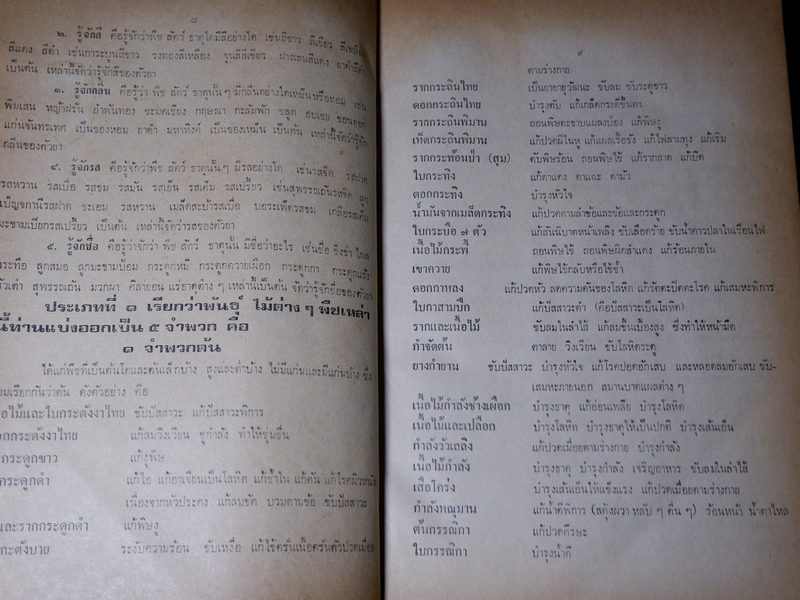 ๘
๒. รู้จักสี คือรู้จักว่าพืช สัตว์ ธาตุใดมีสีอย่างใด เช่นสีขาว สีเขียว สีเหลือง
สีแดง สีดำ เช่นการะบูนสีขาว รงทองสีเหลือง จุนสีสีเขียว ฝางเสนสีแดง ยาดำสีดำ
เป็นต้น เหล่านี้จัดว่ารู้จักสีของตัวยา
๓. รู้จักกลิ่น คือรู้ว่า พืช สัตว์ ธาตุนั้น ๆ มีกลิ่นอย่างใดเหม็นหรือหอม เช่น
พิมเสน หญ้าฝรั่น อำพันทอง ชะมดเชียง กฤษณา กะลำพัก ชลูด อบเชย ขอนดอก
แก่นจันทร์เทศ เป็นของหอม ยาดำ มหาหิงค์ เป็นของเหม็น เป็นต้น เหล่านี้จัดว่ารู้จัก
กลิ่นของตัวยา
๔. รู้จักรส คือรู้จักว่าพืช สัตว์ ธาตุนั้น ๆ มีรสอย่างใด เช่นรสจืด รสฝาด
รสหวาน รสเบื่อ รสขม รสมัน รสเย็น รสเค็ม รสเปรี้ยว เช่นสุพรรณถันรสจืด ลูก
เบ็ญจกานีรสฝาด ชะเอม รสหวาน เมล็ดสะบ้ารสเบื่อ บอระเพ็ดรสขม เกลือรสเค็ม
มะขามเปียกรสเปรี้ยว เป็นต้น เหล่านี้จัดว่ารู้จักรสของตัวยา
๕. รู้จักชื่อ คือรู้จักว่า พืช สัตว์ ธาตุนั้น มีชื่อว่าอะไร เช่นชื่อ ขิงข่า ไพล
กระทือ ลูกสมอ ลูกมะขามป้อม กระดูกหมี กระดูกควายเผือก กระดูกกา กระดูกแร้ง
หัวเต่า สุพรรณถัน มวกผา ศิลายอน แร่ธาตุต่าง ๆ เหล่านี้เป็นต้น จัดว่ารู้จักชื่อของตัวยา
ประเภทที่ ๑ เรียกว่าพันธุ์ ไม้ต่าง ๆ พืชเหล่า
นี้ท่านแบ่งออกเป็น ๕ จำพวก คือ
๑ จำพวกต้น
ได้แก่พืชที่เป็นต้นโตและต้นเล็กบ้าง สูงและต่ำบ้าง ไม่มีแก่นและมีแก่นบ้าง ซึ่ง
ยมเรียกกันว่าต้น ดังตัวอย่าง คือ
อไม้และใบกระดังงาไทย ขับปัสสาวะ แก้ปัสสาวะพิการ
อกกระดังงาไทย แก้ลมวิงเวียน ชูกำลัง ทำให้ชุ่มชื่น
กระดูกขาว แก้งูพิษ
กระดูกดำ แก้ไอ แก้อาเจียนเป็นโลหิต แก้ช้ำใน แก้คัน แก้โรคผิวหนัง
เนื่องจากหัวประดง แก้ลมขัด บวมตามข้อ ขับปัสสาวะ
และรากกระดูกดำ แก้พิษงู
กะตังบาย ระงับความร้อน ขับเหงื่อ แก้ไข้ครั่นเนื้อครั่นตัวปวดเมื่อย
๙
ตามร่างกาย
รากกระถินไทย เป็นอายุวัฒนะ ขับลม ขับระดูขาว
ดอกกระถินไทย บำรุงตับ แก้เกล็ดกระดี่ขึ้นตา
รากกระถินพิมาน ถอนพิษตะขาบแมลงป่อง แก้พิษงู
เห็ดกระถินพิมาน แก้ปวดฝีในหู แก้แผลเรื้อรัง แก้ไฟลามทุ่ง แก้เริม
รากกระท้อนป่า (สุม) ดับพิษร้อน ถอนพิษไข้ แก้รากสาด แก้บิด
ใบกระทิง แก้ตาแดง ตาแฉะ ตามัว
ดอกกระทิง บำรุงหัวใจ
น้ำมันจากเมล็ดกระทิง แก้ปวดตามลำข้อและข้อและกระดูก
ใบกระบือ ๗ ตัว แก้สันนิบาตหน้าเพลิง ขับเลือดร้าย ขับน้ำคาวปลาในเรือนไฟ
เนื้อไม้กระพี้ ถอนพิษไข้ ถอนพิษผิดสำแดง แก้ร้อนภายใน
เขาควาย แก้พิษไข้กลับหรือไข้ซ้ำ
ดอกกาหลง แก้ปวดหัว ลดความดันของโลหิต แก้รัตตะปิตตะโรค แก้เสมหะพิการ
ใบกาสามปีก แก้ปัสสาวะดำ (คือปัสสาวะเป็นโลหิต)
รากและเนื้อไม้ ขับลมในลำไส้ แก้ลมขึ้นเบื้องสูง ซึ่งทำให้หน้ามืด
กำจัดต้น ตาลาย วิงเวียน ขับโลหิตระดู
ยางกำยาน ขับปัสสาวะ บำรุงหัวใจ แก้โรคปอดอักเสบ และหลอดลมอักเสบ ขับ-
เสมหะภายนอก สมานบาดแผลต่าง ๆ
เนื้อไม้กำลังช้างเผือก บำรุงธาตุ แก้อ่อนเพลีย บำรุงโลหิต
เนื้อไม้และเปลือก บำรุงโลหิต บำรุงธาตุให้เป็นปกติ บำรุงเส้นเอ็น
กำลังวัวเถลิง แก้ปวดเมื่อยตามร่างกาย บำรุงกำลัง
เนื้อไม้กำลัง บำรุงธาตุ บำรุงกำลัง เจริญอาหาร ขับลมในลำไส้
เสือโคร่ง บำรุงเส้นเอ็นให้แข็งแรง แก้ปวดเมื่อยตามร่างกาย
กำลังหณุมาน แก้น้ำดีพิการ (สดุ้งผวา หลับ ๆ ตื่น ๆ) ร้อนหน้า น้ำตาไหล
ต้นกรรณิกา แก้ปวดศีรษะ
ใบกรรณิกา บำรุงน้ำดี